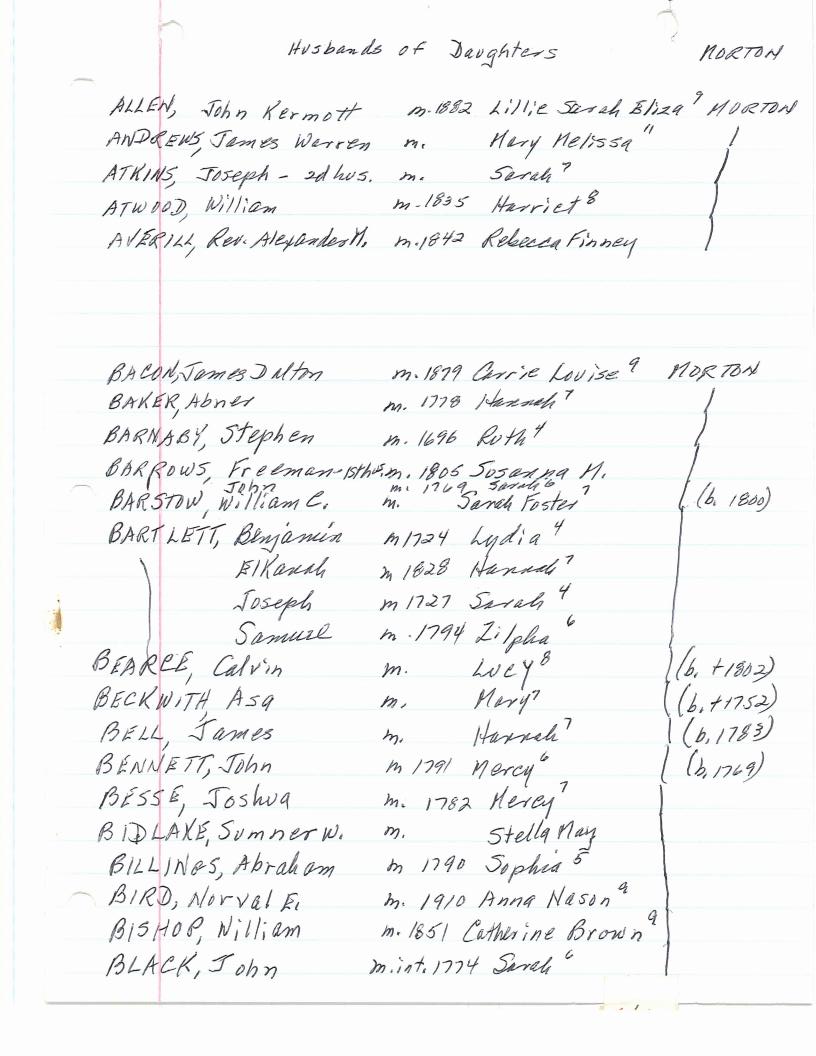 Husbands of Daughters MORTON
ALLEN, John Kermott m. 1882 Lillie Sarah Eliza⁹ MORTON
ANDREWS, James Warren m. Mary Melissa¹¹
ATKINS, Joseph - 2d hus. m. Sarah⁷
ATWOOD, William m. 1835 Harriet⁸
AVERILL, Rev. Alexander M. m. 1842 Rebecca Finney
BACON, James Dalton m. 1879 Carrie Louise⁹ MORTON
BAKER, Abner m. 1778 Hannah⁷
BARNABY, Stephen m. 1696 Ruth⁴
BARROWS, Freeman - 1st hus. m. 1805 Susanna M.
John m. 1769 Sarah⁶
BARSTOW, William C. m. Sarah Foster⁷ (b. 1800)
BARTLETT, Benjamin m 1724 Lydia⁴
Elkanah m 1828 Hannah⁷
Joseph m 1727 Sarah⁴
Samuel m. 1794 Zilpha⁶
BEARCE, Calvin m. Lucy⁸ (b. +1802)
BECKWITH, Asa m. Mary⁷ (b. +1752)
BELL, James m. Hannah⁷ (b. 1783)
BENNETT, John m 1791 Mercy⁶ (b. 1769)
BESSE, Joshua m. 1782 Mercy⁷
BIDLAKE, Sumner W. m. Stella May
BILLINGS, Abraham m 1790 Sophia⁵
BIRD, Norval E. m. 1910 Anna Nason⁹
BISHOP, William m. 1851 Catherine Brown⁹
BLACK, John m. int. 1774 Sarah⁶